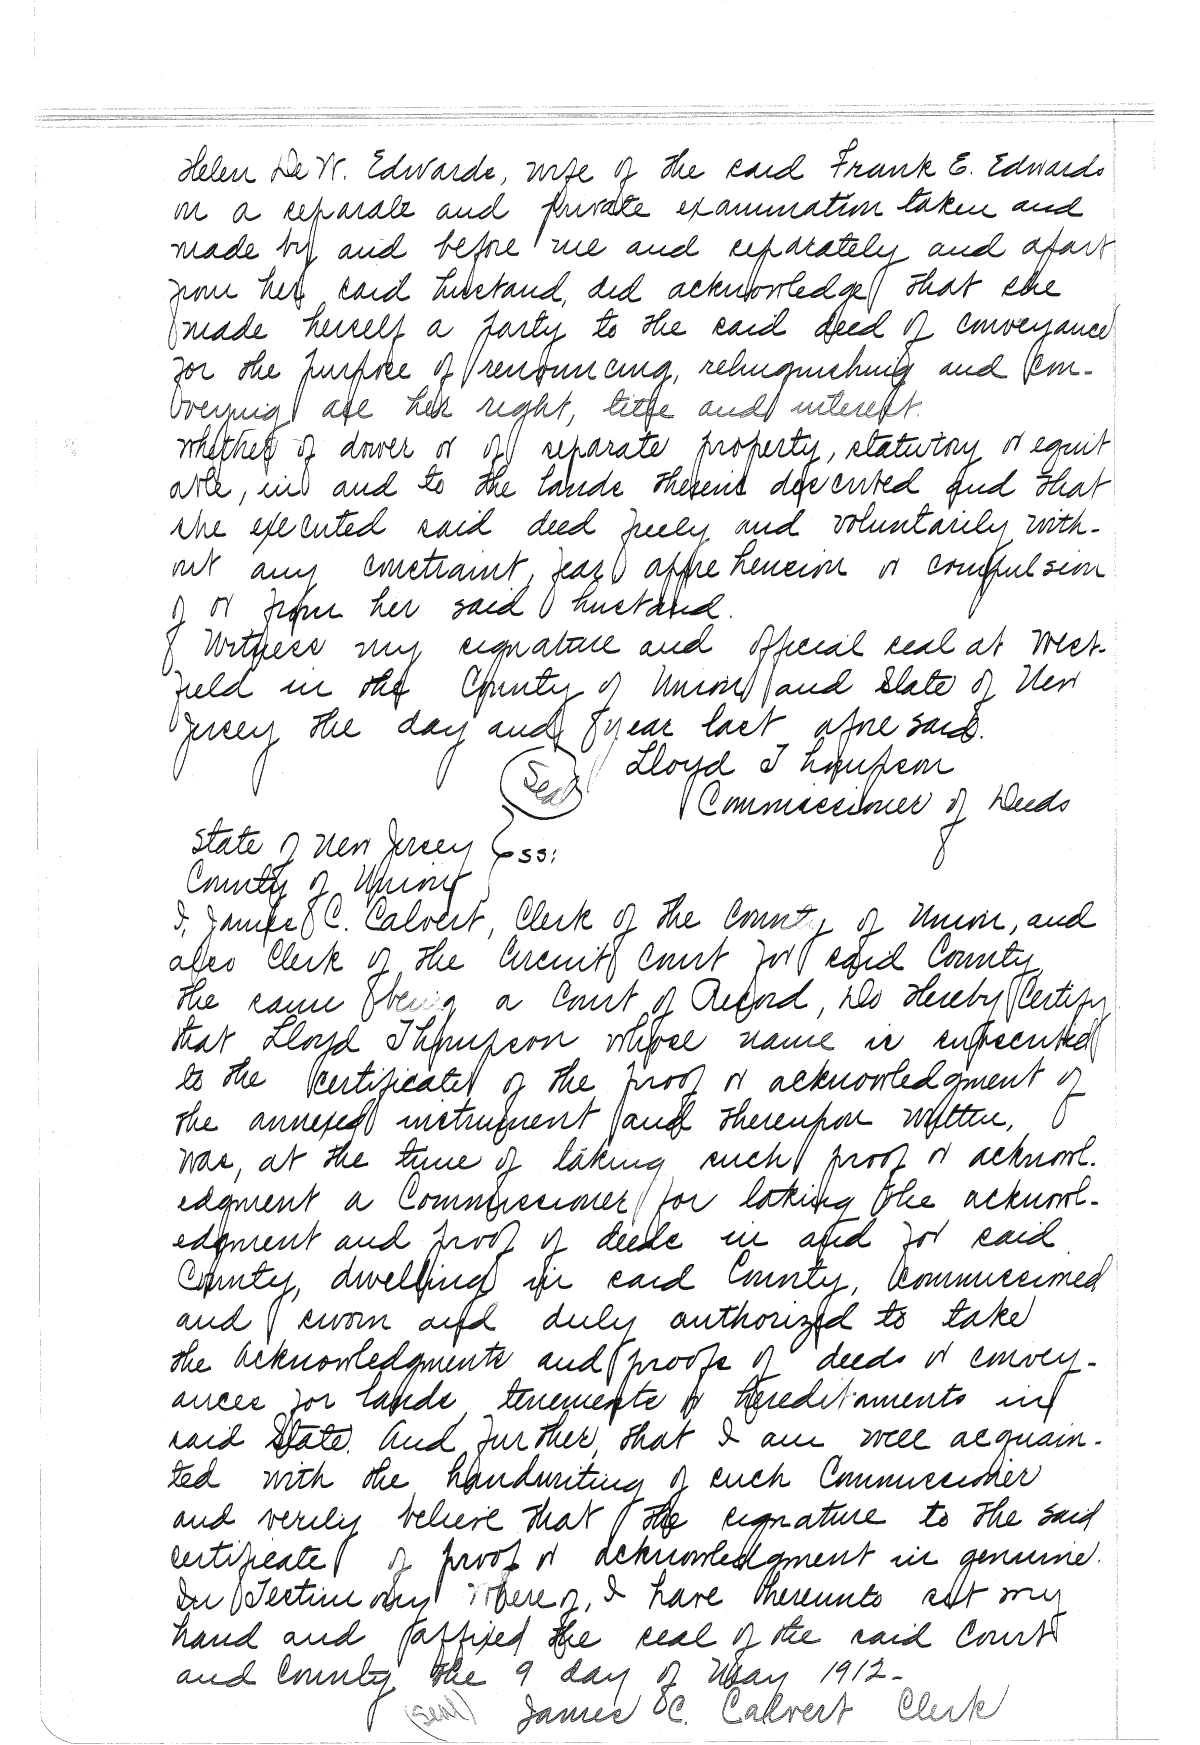 Helen De W. Edwards, wife of the said Frank E. Edwards
on a separate and private examination taken and
made by and before me and separately and apart
from her said husband, did acknowledge that she
made herself a party to the said deed of conveyance
for the purpose of renouncing, relinquishing and con-
veying all her right, title and interest.
Whether of dower or of separate property, statutory or equit
able, in and to the lands therein described and that
she executed said deed freely and voluntarily with-
out any constraint, fear apprehension or compulsion
of or from her said husband.
Witness my signature and official seal at West-
field in the County of Union and State of New
Jersey the day and year last aforesaid.
Seal
Lloyd Thompson
Commissioner of Deeds
State of New Jersey
ss:
County of Union
I, James C. Calvert, Clerk of the County of Union, and
also Clerk of the Circuit Court for said County
the same being a Court of Record, Do Hereby Certify
that Lloyd Thompson whose name is subscribed
to the certificate of the proof or acknowledgment of
the annexed instrument and thereupon written,
was, at the time of taking such proof or acknowl.
edgment a Commissioner for taking the acknowl-
edgment and proof of deeds in and for said
County, dwelling in said County, commissioned
and sworn and duly authorized to take
the acknowledgments and proofs of deeds or convey-
ances for lands tenements or hereditaments in
said State. And further, that I am well acquain-
ted with the handwriting of such Commissioner
and verily believe that the signature to the said
certificate of proof or acknowledgment in genuine.
In Testimony Whereof, I have hereunto set my
hand and affixed the seal of the said Court
and County the 9 day of May 1912-
(Seal) James C. Calvert Clerk